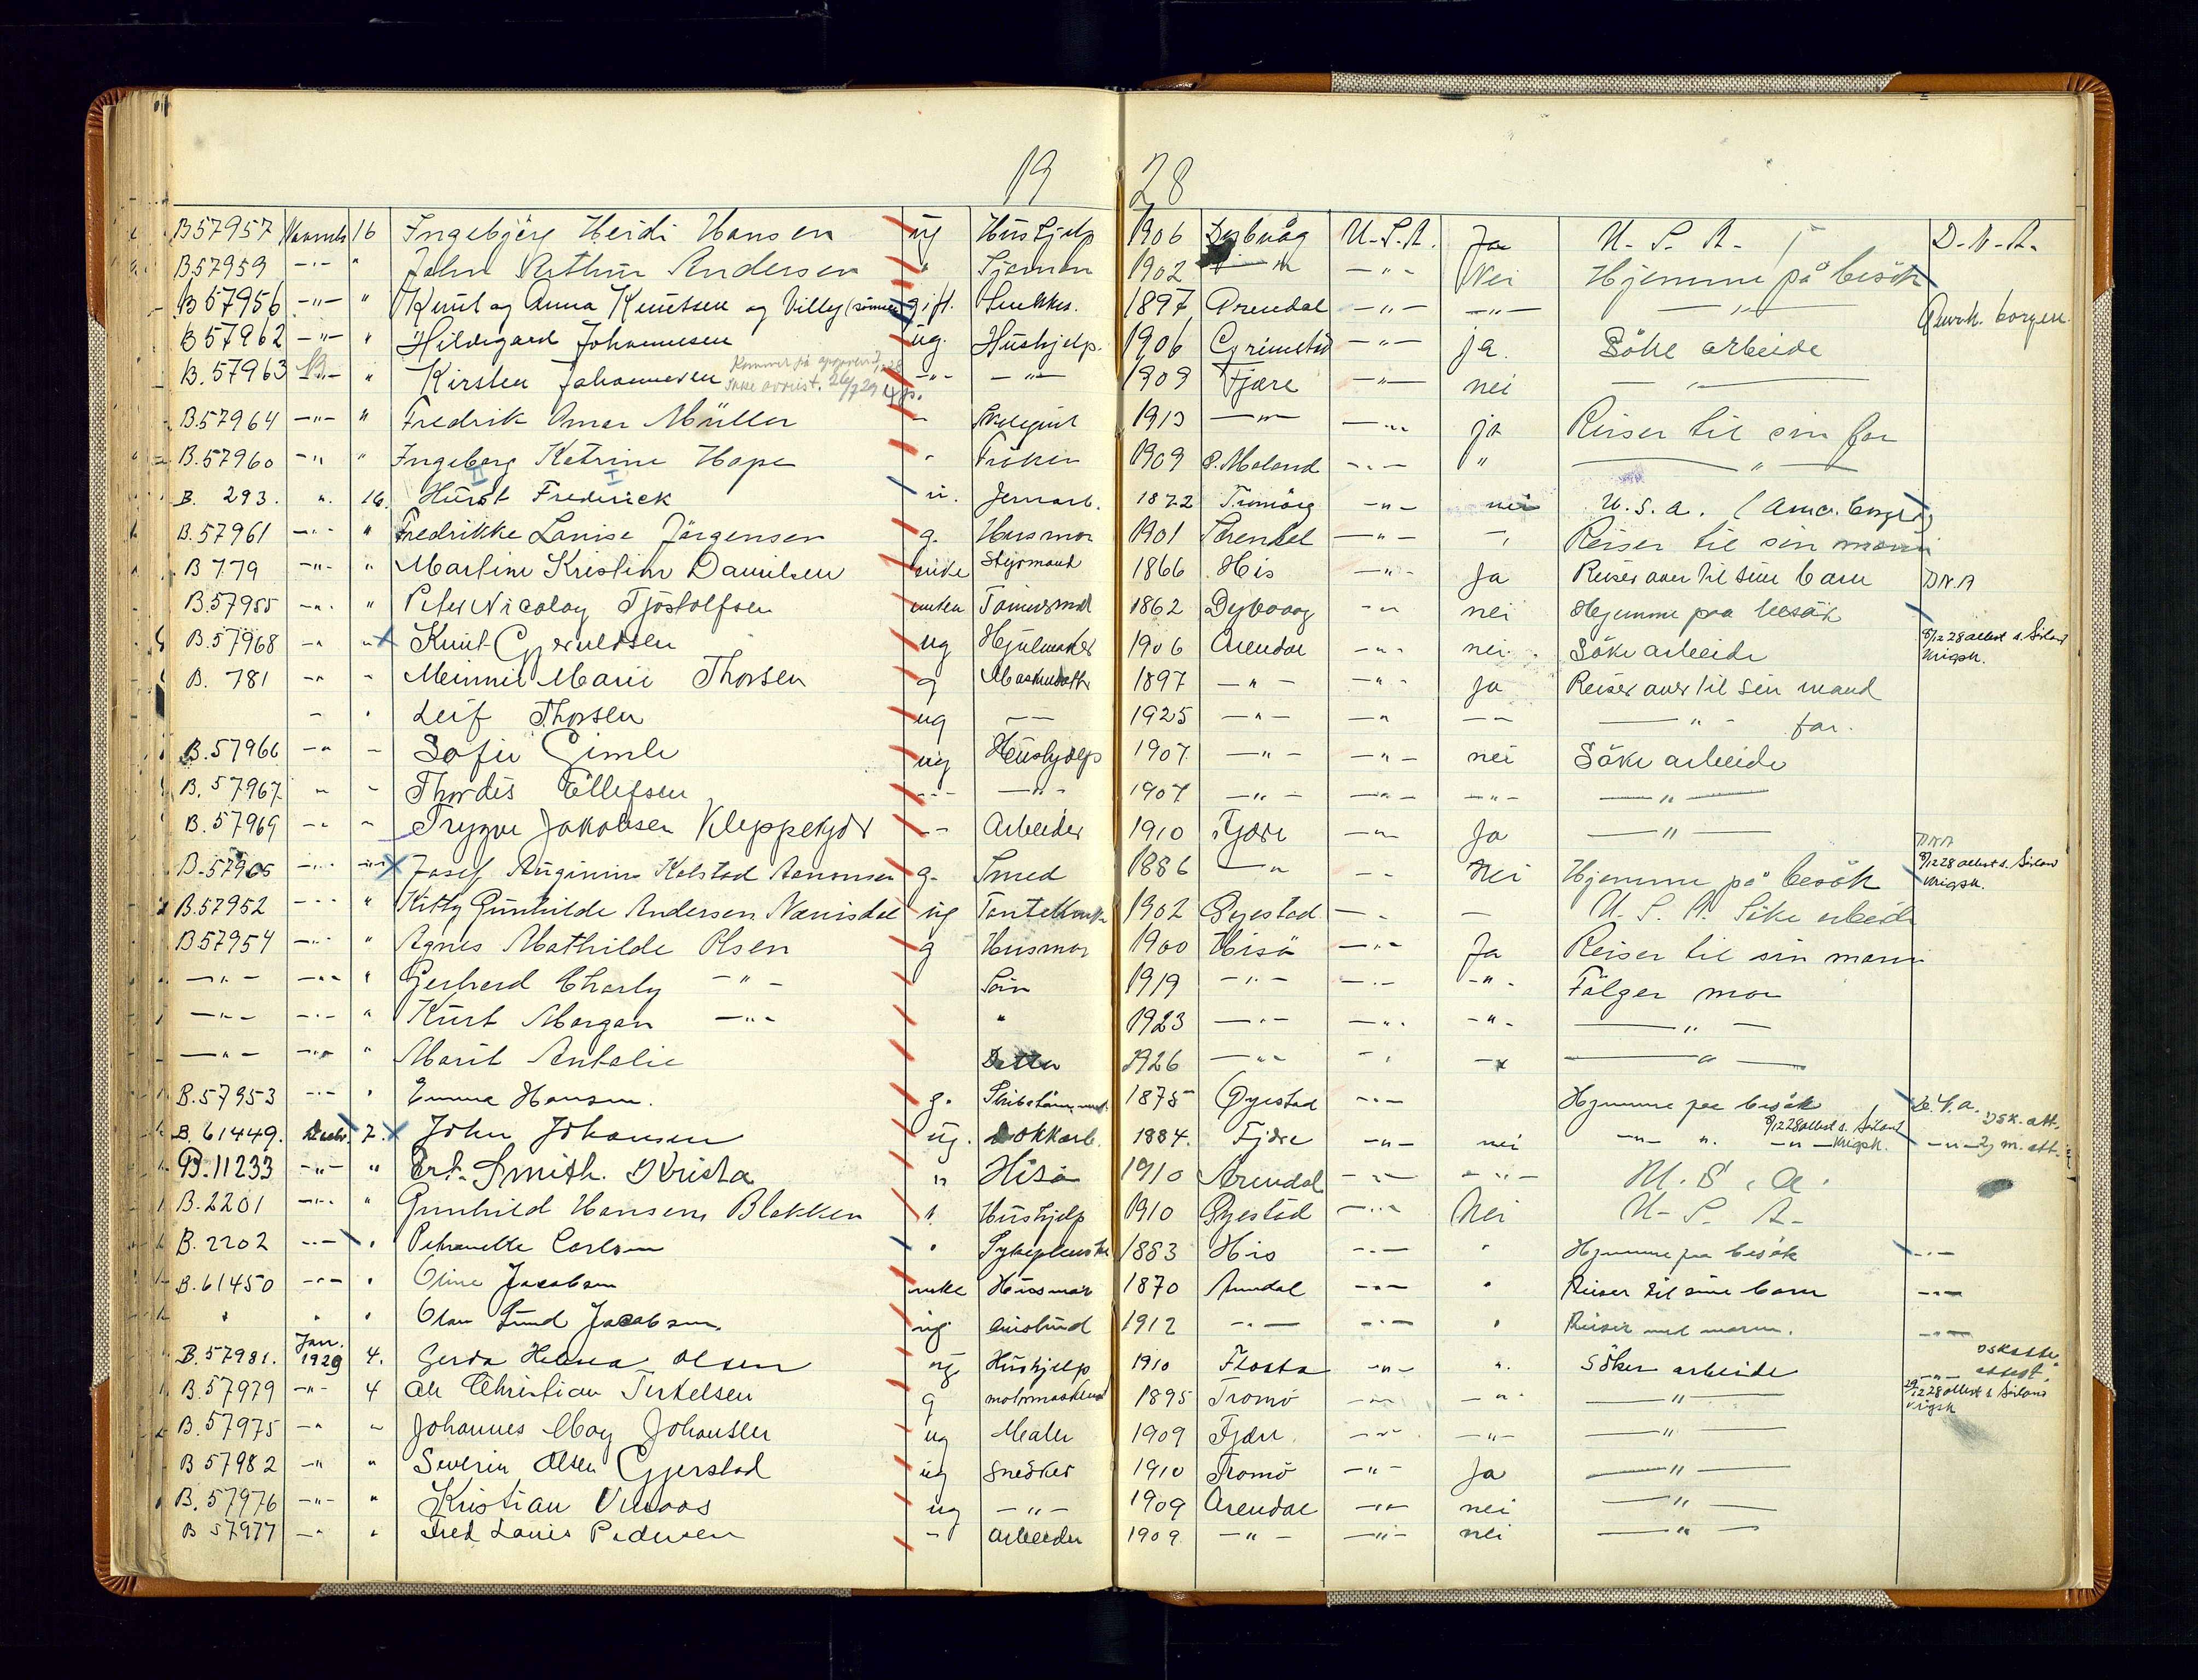 19 28
B57957 Novemb 16 Ingebjörg Heidi Hansen ug Hushjelp 1906 Dybvåg U.S.A. Ja U.S.A. D.N.A.
B57959 -"- " John Arthur Andersen " Sjømann 1902 -"- -"- Nei Hjemme på besök
B57956 -"- " Knut og Anna Knutsen og Villy (sønnen) gift. Snekker. 1897 Arendal -"- -"- -"- Amerik. borger.
B57962 -"- " Hildegard Johannesen ug. Hushjelp. 1906 Grimstad -"- ja. Söke arbeide
B.57963 -"- " Kirsten Johannesen -"- -"- 1909 Fjære -"- nei -"-
B.57964 -"- " Fredrik Omar Müller - 1913 -"- -"- ja Reiser til sin far
B.57960 -"- " Ingeborg Katrine Hope " Frøken 1909 Ø.Moland -"- " -"-
B. 293. ". 16. Hurst Frederick u. Jernarb. 1872 Tromöy -"- nei U.S.A. (Amer. borger)
B.57961 -"- " Fredrikke Lovise Jörgensen g. Husmor 1901 Arendal -"- -" Reiser til sin mann
B 779 -"- " Martine Kristine Danielsen enke Styrmand 1866 His -"- Ja Reiser over til sine barn DNA
B.57955 -"- " Peter Nicolay Tjöstolfsen enkem Tömmermd 1862 Dybvaag -"- nei Hjemme paa besök
B.57968 -"- -"- Knut Gjeruldsen ug Hjulmaker 1906 Arendal -"- nei Söke arbeide 8/12 28 attest s. Sörland Krigsk.
B. 781 -"- - Meinni Marie Thorsen g 1897 -"- -"- ja Reiser over til sin mand
- " Leif Thorsen ug -- 1925 -"- -"- -- -"- far.
B.57966 -"- - Sofie Gimle ug Hushjelp 1907 -"- -"- nei Söke arbeide
B.57967 - - Thordis Ellefsen --- -"- 1907 -"- -"- -"- -"-
B.57969 -"- - Trygve Jakobsen Kleppekjær -- Arbeider 1910 Fjære -"- Ja -"-
B.57965 -"- -"- Josef Auginius Kolstad Aanonsen g. Smed 1886 -"- -- Nei Hjemme på besök DNA 8/12 28 attest s. Sörland Krigsk.
B.57952 -"- " Kitty Gunhilde Andersen Nævisdal ug 1902 Öyestad -"- - U.S.A. Söke arbeide
B57954 -"- " Agnes Mathilde Olsen g Husmor 1900 Hisö -"- Ja Reiser til sin mann
-"- -"- " Gerhard Charly -"- Sön 1919 -"- -"- -"- Fölger mor
-"- -"- " Kurt Morgan -"- " 1923 -"- -"- -"- -"-
-"- -"- " Marit Antalie Datter 1926 -"- -"- -"- -"-
B.57953 -"- " Emma Hansen. g. 1875 Öyestad -"- Hjemme paa besök U.S.A. Dsk. att.
B.61449. Decbr. 7. John Johansen ug. Dokkarb. 1884. Fjære -"- nei -"- ". 8/12 28 attest s. Sörland Krigsk. -"- m. att.
B.11233 -"- " Ert. Smith. Krista " Hisö 1910 Arendal -"- -"- U.S.A.
B.2201 -"- " Gunhild Hansen Blakken ". Hushjelp 1910 Öyestad -"- Nei U.S.A.
B.2202 -"- " Petronelle Carlsen " Sykepleierske 1883 His -"- " Hjemme paa besök -"-
B.61450 -"- " Oline Jacobsen enke Husmor 1870 Arendal -"- " Reiser til sine barn -"-
" " " Olav Lund Jacobsen. ug 1912 -"- -"- " Reiser med moren. -"-
B.57981. Jan. 1929 4. Gerda Helena Olsen ug Hushjelp 1910 Flosta -"- ". Söker arbeide Dsk attest.
B.57979 -"- 4 Ole Christian Terkelsen g motormaskinist 1895 Tromö -"- -"- -"- 29/12 28 attest s. Sörland Krigsk
B.57975 -"- - Johannes May Johansen ug Maler 1909 Fjære -"- -"- -"-
B 57982 -"- " Severin Olsen Gjerstad ug Snedker 1910 Tromö -"- Ja -"-
B.57976 -"- " Kristian ug -"- 1909 Arendal -"- nei -"-
B 57977 -"- " Fred Louis Pedersen -"- Arbeider 1909 -"- -"- nei -"-